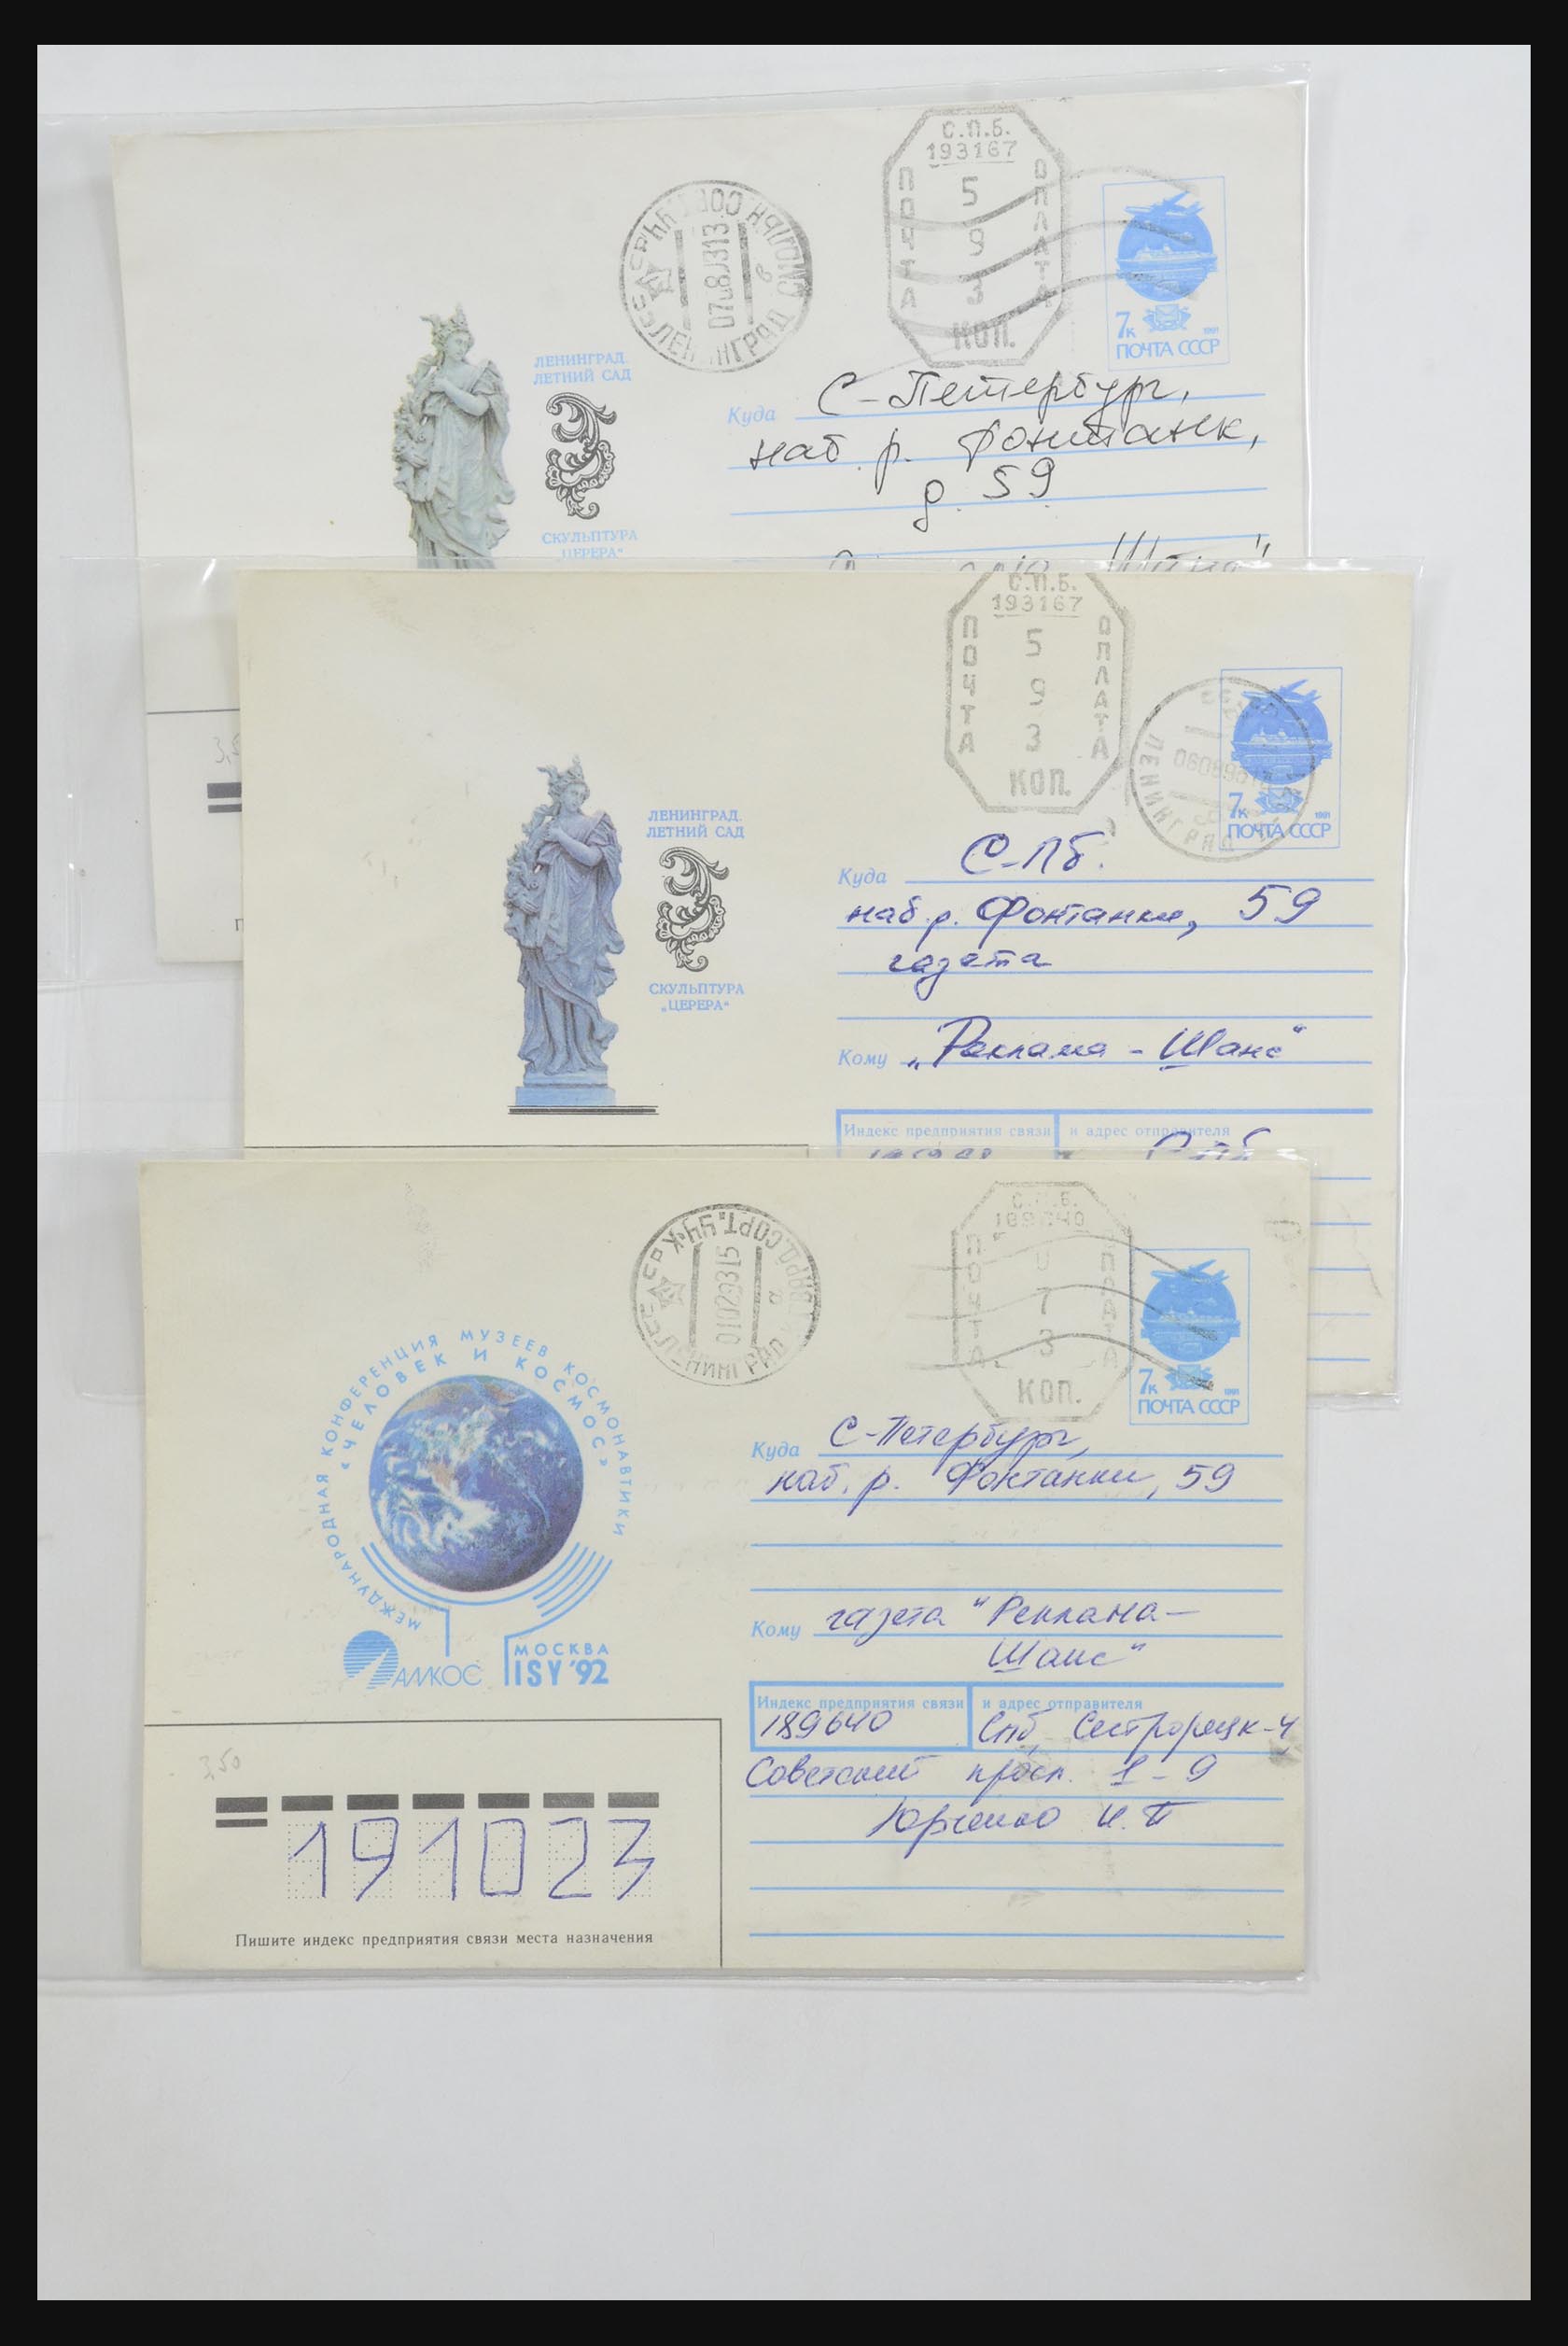 С.П.Б.
193167
ПОЧТА
5
9
3
ОПЛАТА
КОП.
ЛЕНИНГРАД
7к
1991
ПОЧТА СССР
ЛЕНИНГРАД.
ЛЕТНИЙ САД
СКУЛЬПТУРА
„ЦЕРЕРА“
Куда С-Петербург,
наб. р. Фонтанк,
д. 59
3,5
С.П.Б.
193167
ПОЧТА
5
9
3
ОПЛАТА
КОП.
ЛЕНИНГРАД
7к
1991
ПОЧТА СССР
ЛЕНИНГРАД.
ЛЕТНИЙ САД
СКУЛЬПТУРА
„ЦЕРЕРА“
Куда С-Пб.
наб. р. Фонтанки, 59
газета
Кому „Реклама - Шанс“
Индекс предприятия связи и адрес отправителя
С-Пб
С.П.Б.
ПОЧТА
7
3
КОП.
7к
1991
ПОЧТА СССР
МЕЖДУНАРОДНАЯ КОНФЕРЕНЦИЯ МУЗЕЕВ КОСМОНАВТИКИ
«ЧЕЛОВЕК И КОСМОС»
АМКОС
МОСКВА
ISY '92
Куда С-Петербург,
наб. р. Фонтанки, 59
Кому газета "Реклама-
Шанс"
Индекс предприятия связи и адрес отправителя
189640 Спб, Сестрорецк-4
Советский просп. 1-9
Юрченко И.П
3,50
191023
Пишите индекс предприятия связи места назначения